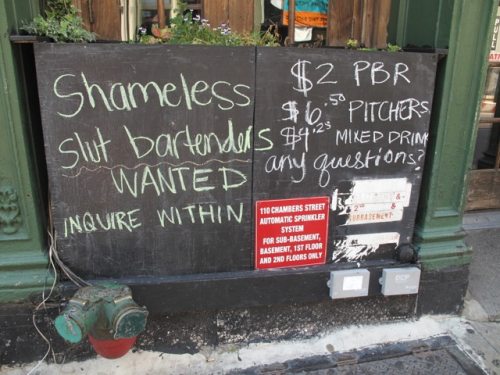 Shameless
slut bartenders
WANTED
INQUIRE WITHIN
$2 PBR
$6.50 PITCHERS
$4.25 MIXED DRINK
any questions?
110 CHAMBERS STREET
AUTOMATIC SPRINKLER
SYSTEM
FOR SUB-BASEMENT,
BASEMENT, 1ST FLOOR
AND 2ND FLOORS ONLY
&
SUBBASEMENT